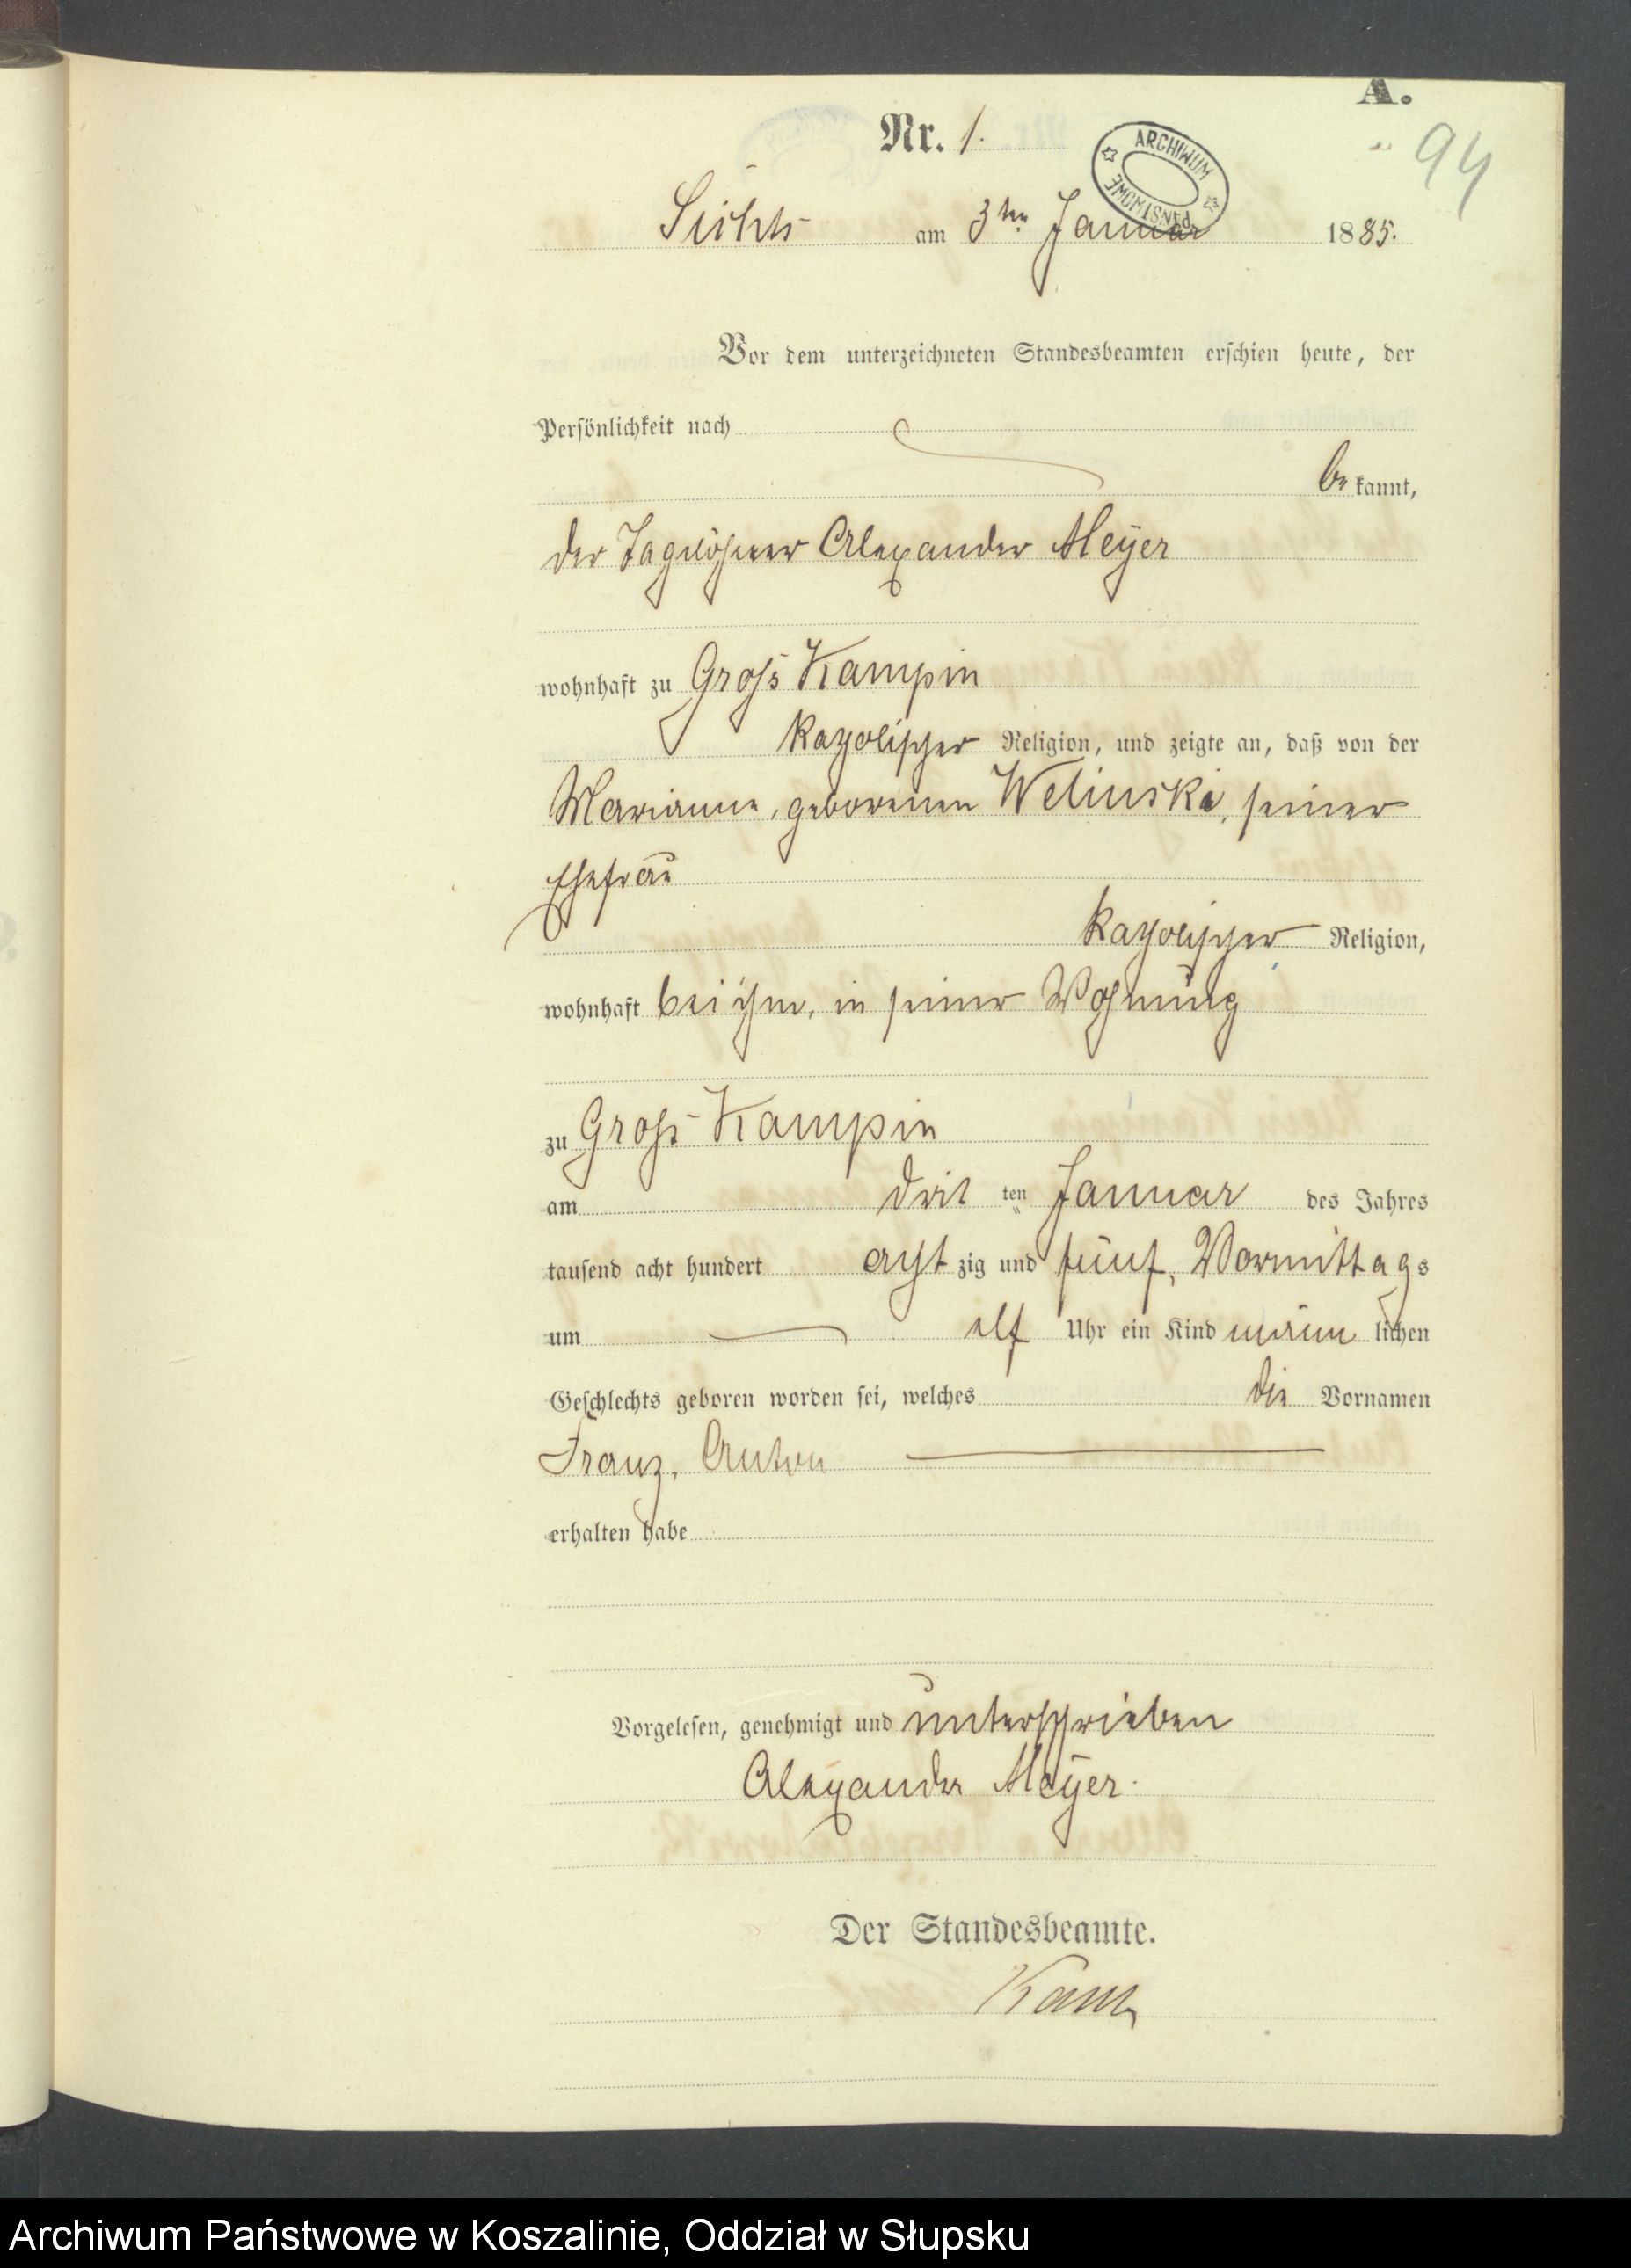 A.
94
Nr. 1.
ARCHIWUM PAŃSTWOWE
am 3ten Januar 1885.
Vor dem unterzeichneten Standesbeamten erschien heute, der
Persönlichkeit nach
be kannt,
der Tagelöhner Alexander Meyer
wohnhaft zu Groß Kampin
katholischer Religion, und zeigte an, daß von der
Marianne, geborenen Welinski, seiner
Ehefrau
katholischer Religion,
wohnhaft bei ihm, in seiner Wohnung
zu Groß Kampin
am drit ten Januar des Jahres
tausend acht hundert acht zig und fünf, Vormittags
um elf Uhr ein Kind männ lichen
Geschlechts geboren worden sei, welches die Vornamen
Franz, Anton
erhalten habe
Vorgelesen, genehmigt und unterschrieben
Alexander Meyer.
Der Standesbeamte.
Archiwum Państwowe w Koszalinie, Oddział w Słupsku